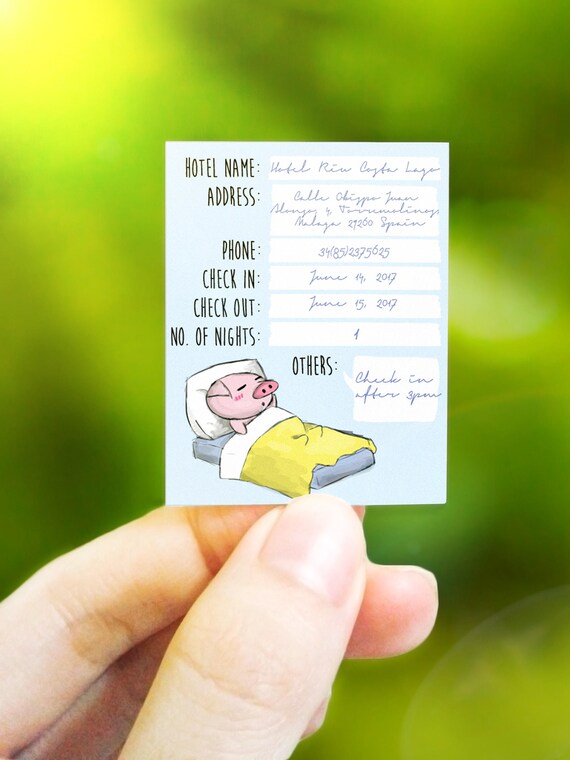 HOTEL NAME: Hotel Riu Costa Lago
ADDRESS: Calle Obispo Juan
Alonso, 4, Torremolinos,
Malaga 29260 Spain
PHONE: 34(85)2375625
CHECK IN: June 14, 2017
CHECK OUT: June 15, 2017
NO. OF NIGHTS: 1
OTHERS: Check in
after 3pm